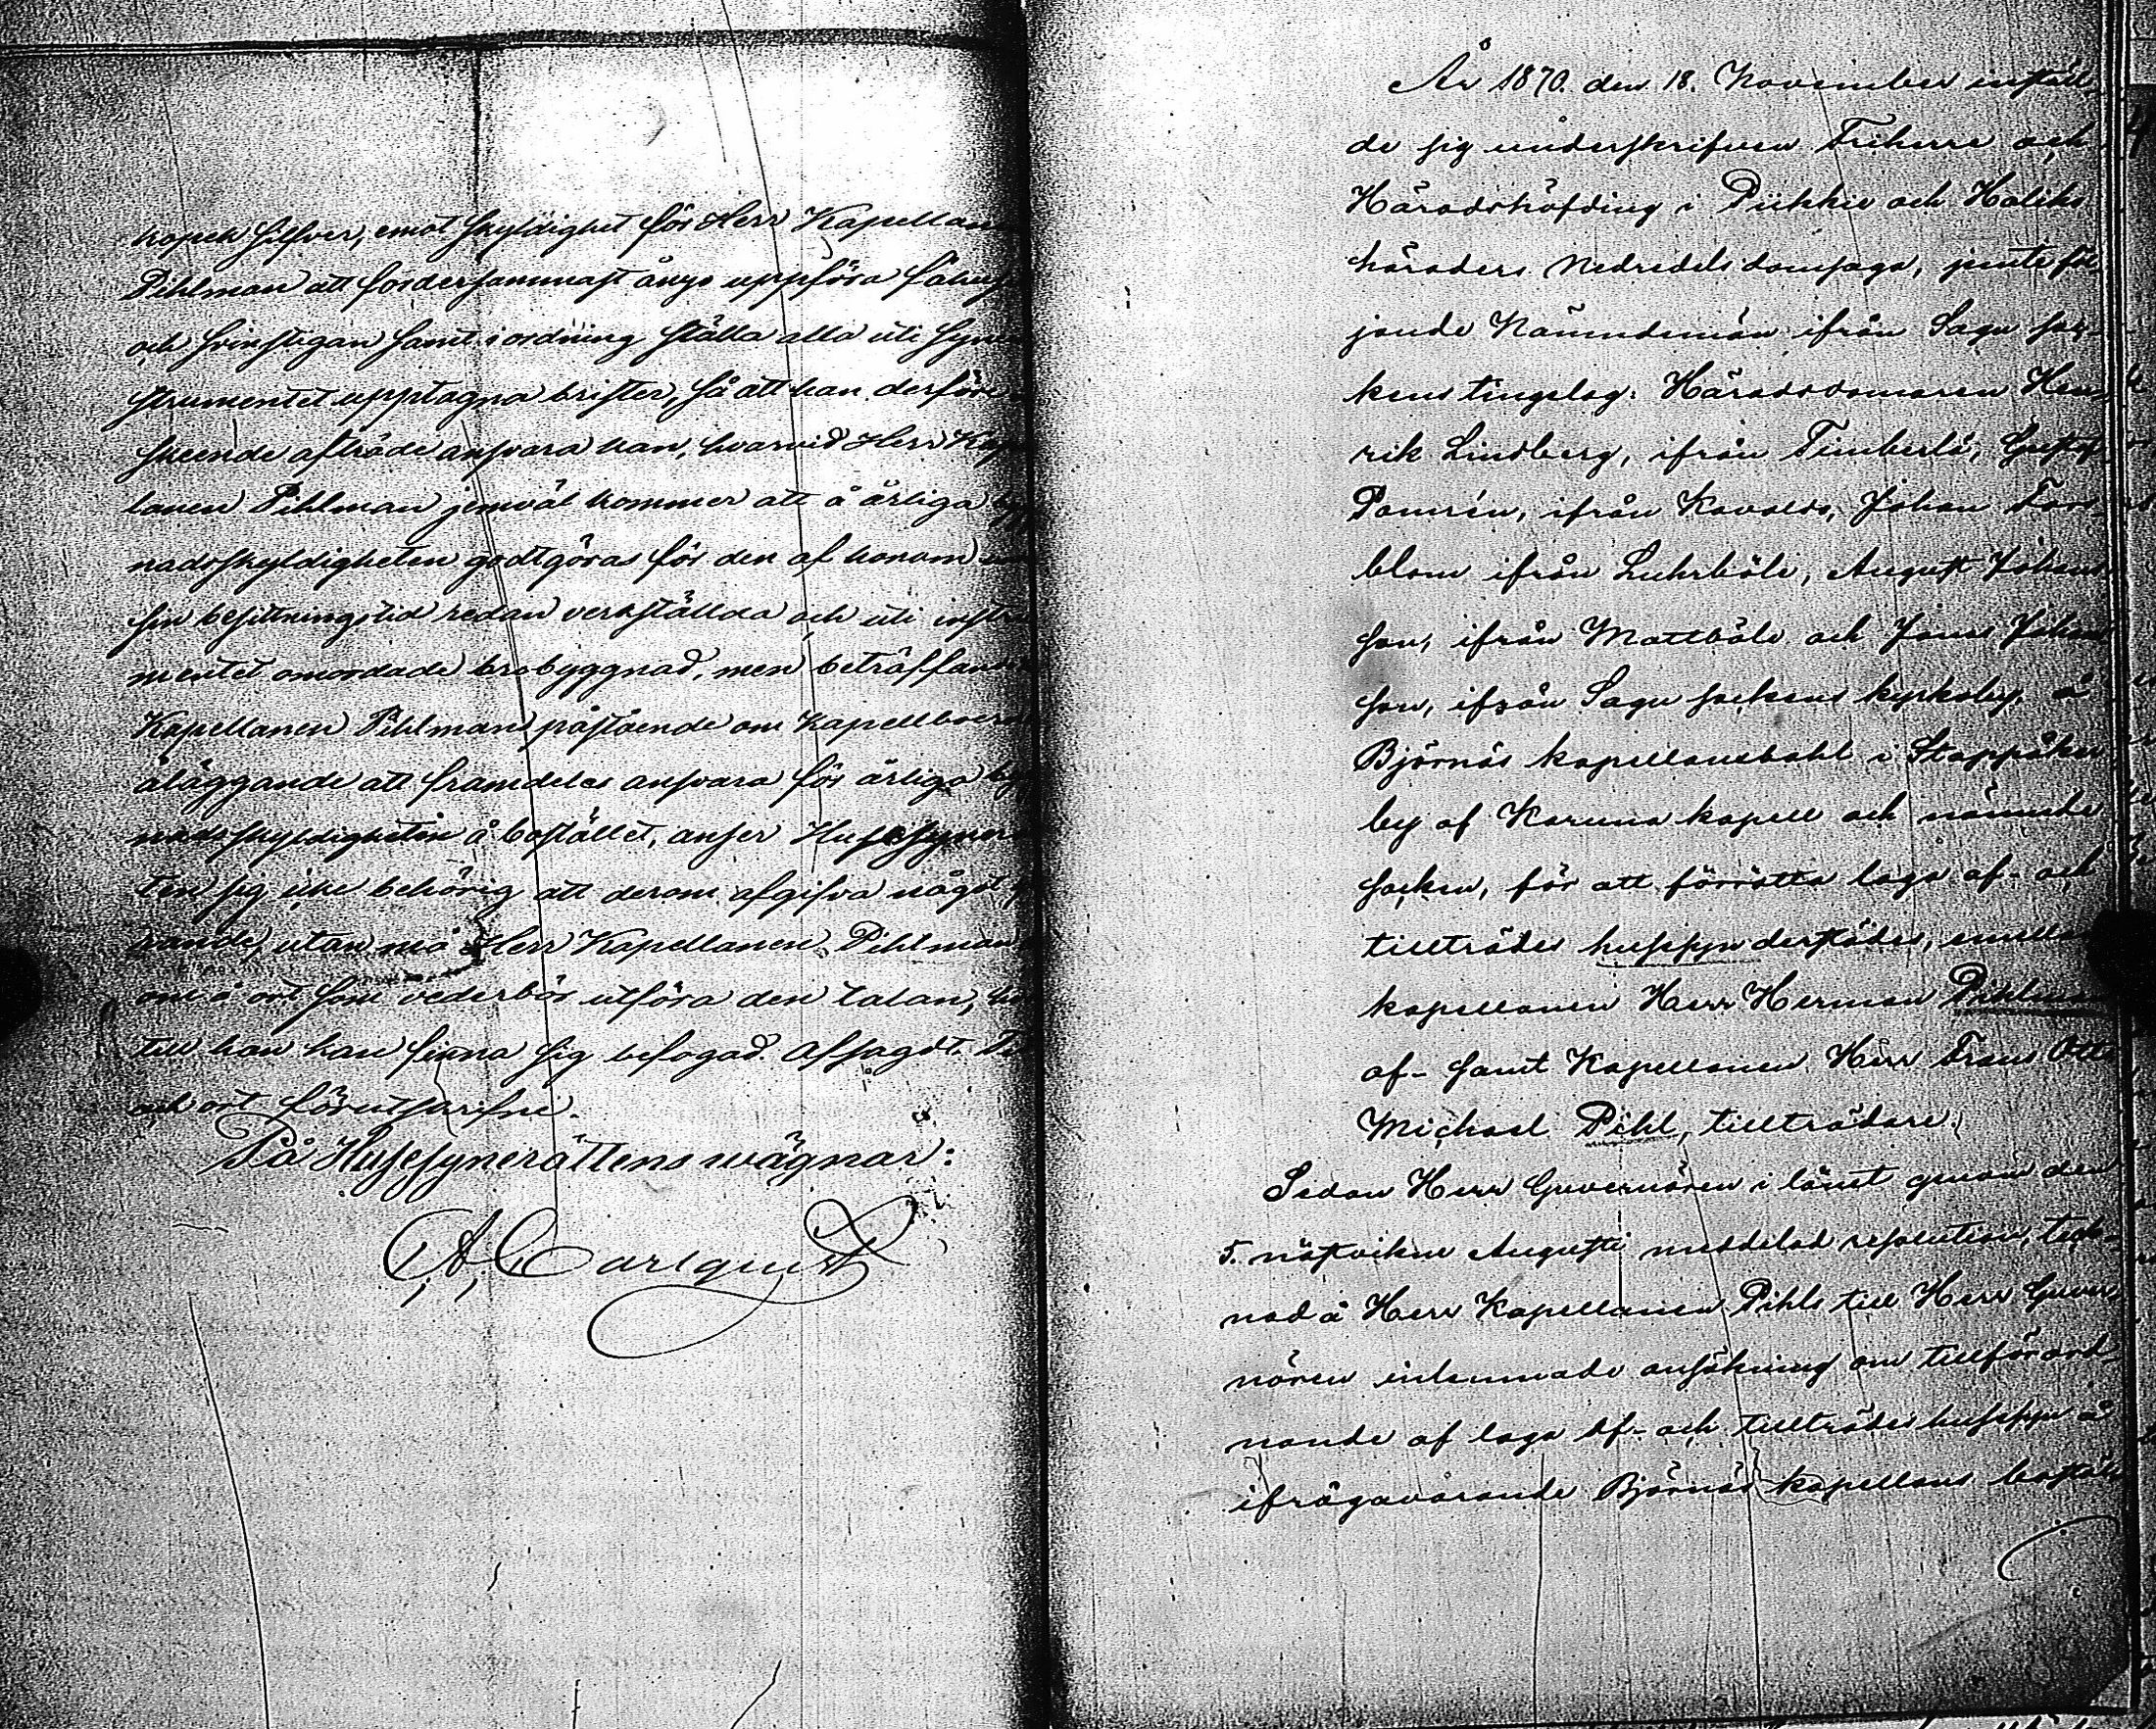 kopek silfver, emot skyldighet för Herr Kapellan
Pihlman att fordersammast ånyo uppföra fähus
och svinstigan samt i ordning ställa alla uti syn
strumentet upptagna brister, så att han derföre
skeende afträde ansvara kan, hvarvid Herr Kap
lanen Pihlman jemväl kommer att å årliga
nadsskyldigheten godtgöras för den af honom
sin besittningstid redan verkställda och uti instru
mentet omordade brobyggnad, men beträffande
Kapellanen Pihlmans påstående om Kapellboer
åläggande att framdeles ansvara för årliga byg
nadsskyldigheten å bostället, anser Husesynerä
ten sig icke behörig att derom afgifva något
rande, utan må Herr Kapellanen Pihlman
om å ort som vederbör utföra den talan,
till han kan finna sig befogad. Afsagdt.
och ort förutskrifne.
På Husesynerättens wägnar:
C, A, Carlquist
År 1870. den 18. November instäl-
de sig underskrifven Friherre och
Häradshöfding i Piikkie och Haliko
häraders Nedredels domsaga, jemte föl-
jande Nämndemän ifrån Sagu soc-
kens tingslag: Häradsdomaren Hen
rik Lindberg, ifrån Timberla, Gustaf
Pamrén, ifrån Kavalto, Johan Fors
blom ifrån Luhrböle, August Johans
son, ifrån Mattböle och Jonas Johan
son, ifrån Sagu sockens kyrkoby, å
Björnäs kapellansbohl i Stappåker
by af Karuna kapell och nämnde
socken, för att förrätta laga af- och
tillträdes husesyn derstädes, emellan
kapellanen Herr Herman Pihlman
af- samt Kapellanen Herr Frans Otto
Michael Pihl, tillträdare.
Sedan Herr Guvernören i länet genom den
5. nästvikne Augusti meddelad resolution, teck-
nad å Herr Kapellanen Pihls till Herr Guver
nören inlemnade ansökning om tillförord-
nande af laga Af- och tillträdes husesyn å
ifrågavarande Björnäs kapellans boställe